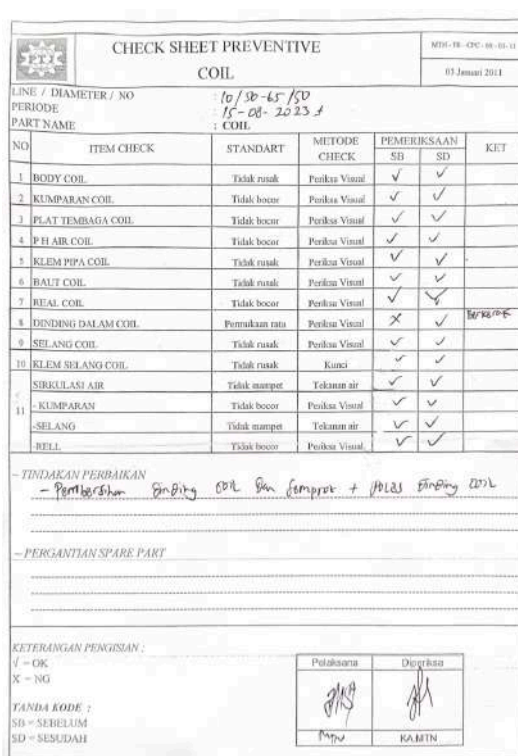 PTJ
CHECK SHEET PREVENTIVE
COIL
03 Januari 2011
LINE / DIAMETER / NO : 10/50-65/50
PERIODE : 15-08-2023
PART NAME : COIL
NO ITEM CHECK STANDART METODE CHECK PEMERIKSAAN KET
SB SD
1 BODY COIL Tidak rusak Periksa Visual √ √
2 KUMPARAN COIL Tidak bocor Periksa Visual √ √
3 PLAT TEMBAGA COIL Tidak bocor Periksa Visual √ √
4 P H AIR COIL Tidak bocor Periksa Visual √ √
5 KLEM PIPA COIL Tidak rusak Periksa Visual √ √
6 BAUT COIL Tidak rusak Periksa Visual √ √
7 REAL COIL Tidak bocor Periksa Visual √ √
8 DINDING DALAM COIL Permukaan rata Periksa Visual X √ Berkerak
9 SELANG COIL Tidak rusak Periksa Visual √ √
10 KLEM SELANG COIL Tidak rusak Kunci √ √
11 SIRKULASI AIR Tidak mampet Tekanan air √ √
- KUMPARAN Tidak bocor Periksa Visual √ √
-SELANG Tidak mampet Tekanan air √ √
-RELL Tidak bocor Periksa Visual √ √
- TINDAKAN PERBAIKAN
- Pembersihan Dinding COIL Dan Semprot + Dinding COIL
- PERGANTIAN SPARE PART
KETERANGAN PENGISIAN :
√ = OK
X = NG
TANDA KODE :
SB = SEBELUM
SD = SESUDAH
Pelaksana Diperiksa
KA.MTN